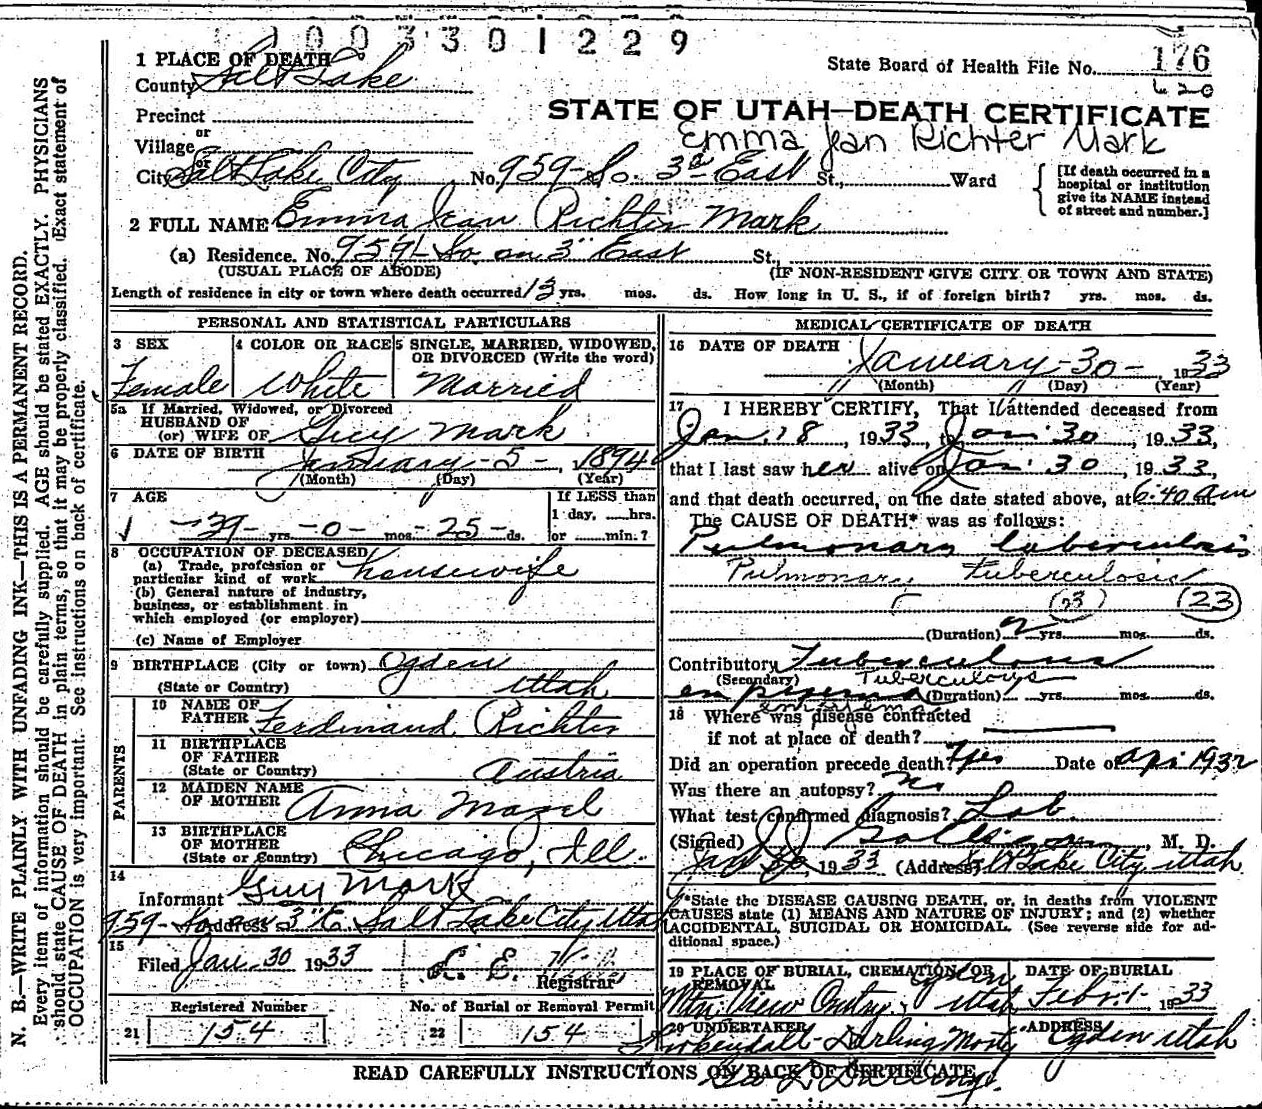 003301229
1 PLACE OF DEATH
County Salt Lake
State Board of Health File No. 176
620
Precinct
or
Village
or
STATE OF UTAH—DEATH CERTIFICATE
Emma Jean Richter Mark
City Salt Lake City No. 959 - So. 3rd East St., Ward
[If death occurred in a hospital or institution give its NAME instead of street and number.]
2 FULL NAME Emma Jean Richter Mark
(a) Residence. No. 959 - So. on 3" East St.,
(USUAL PLACE OF ABODE) (IF NON-RESIDENT GIVE CITY OR TOWN AND STATE)
Length of residence in city or town where death occurred 13 yrs. mos. ds. How long in U. S., if of foreign birth? yrs. mos. ds.
PERSONAL AND STATISTICAL PARTICULARS
3 SEX 4 COLOR OR RACE 5 SINGLE, MARRIED, WIDOWED, OR DIVORCED (Write the word)
Female White Married
5a If Married, Widowed, or Divorced
HUSBAND OF
(or) WIFE OF Guy Mark
6 DATE OF BIRTH January - 5 -, 1894
(Month) (Day) (Year)
7 AGE If LESS than
1 day, ......hrs.
39 yrs. 0 mos. 25 ds. or ......min.?
8 OCCUPATION OF DECEASED
(a) Trade, profession or
particular kind of work housewife
(b) General nature of industry,
business, or establishment in
which employed (or employer)
(c) Name of Employer
9 BIRTHPLACE (City or town) Ogden
(State or Country) Utah
PARENTS
10 NAME OF
FATHER Ferdinand Richter
11 BIRTHPLACE
OF FATHER
(State or Country) Austria
12 MAIDEN NAME
OF MOTHER Anna Mazel
13 BIRTHPLACE
OF MOTHER
(State or Country) Chicago, Ill.
14
Informant Guy Mark
Address 959 - So. on 3" E. Salt Lake City Utah
15
Filed Jan. 30 1933
Registrar
Registered Number No. of Burial or Removal Permit
21 154 22 154
MEDICAL CERTIFICATE OF DEATH
16 DATE OF DEATH January - 30 -, 1933
(Month) (Day) (Year)
17 I HEREBY CERTIFY, That I attended deceased from
Jan. 18, 1933, to Jan. 30, 1933,
that I last saw her alive on Jan. 30, 1933,
and that death occurred, on the date stated above, at 6:40 am
The CAUSE OF DEATH* was as follows:
Pulmonary tuberculosis
Pulmonary Tuberculosis
(23) (23)
(Duration) 2 yrs. mos. ds.
Contributory Tuberculous
(Secondary) Tuberculous
empyema (Duration) yrs. mos. ds.
empyema
18 Where was disease contracted
if not at place of death?
Did an operation precede death? Yes Date of Apr 1932
Was there an autopsy? No
What test confirmed diagnosis? Lab.
(Signed) M. D.
Jan 30, 1933 (Address) Salt Lake City Utah
*State the DISEASE CAUSING DEATH, or, in deaths from VIOLENT
CAUSES state (1) MEANS AND NATURE OF INJURY; and (2) whether
ACCIDENTAL, SUICIDAL OR HOMICIDAL. (See reverse side for ad-
ditional space.)
19 PLACE OF BURIAL, CREMATION, OR REMOVAL DATE OF BURIAL
Mtn. View Ogden, Utah Feb. 1 - 1933
20 UNDERTAKER ADDRESS
Kirkendall - Darling Morty Ogden Utah
READ CAREFULLY INSTRUCTIONS ON BACK OF CERTIFICATE
N. B.—WRITE PLAINLY WITH UNFADING INK—THIS IS A PERMANENT RECORD.
Every item of information should be carefully supplied. AGE should be stated EXACTLY. PHYSICIANS
should state CAUSE OF DEATH in plain terms, so that it may be properly classified. Exact statement of
OCCUPATION is very important. See instructions on back of certificate.